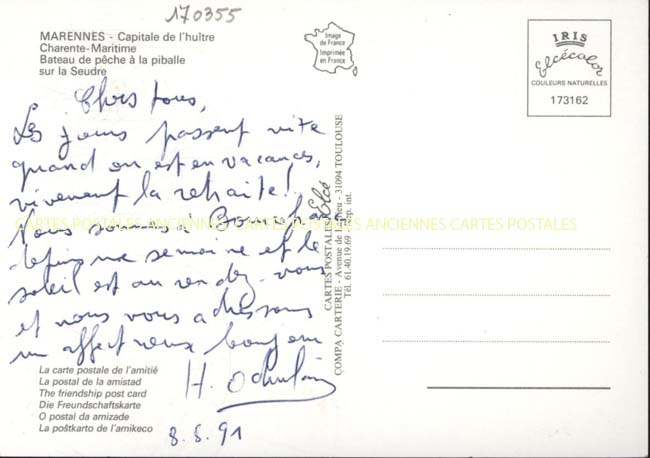 170355
MARENNES - Capitale de l'huître
Charente-Maritime
Bateau de pêche à la piballe
sur la Seudre
Image
de France
Imprimée
en France
IRIS
Elcécolor
COULEURS NATURELLES
173162
Chers tous,
Les jours passent vite
quand on est en vacances,
vivement la retraite!
Nous sommes à
depuis une semaine et le
soleil est au rendez-vous
et nous vous adressons
un affectueux bonjour
H.
8.8.91
CARTES POSTALES ANCIENNES CARTES POSTALES ANCIENNES CARTES POSTALES
CARTES POSTALES Elcé
COMPA CARTERIE - Avenue de - 31094 TOULOUSE
Tél. 61.40.19.69 - Dép. int.
La carte postale de l'amitié
La postal de la amistad
The friendship post card
Die Freundschaftskarte
O postal da amizade
La poŝtkarto de l'amikeco